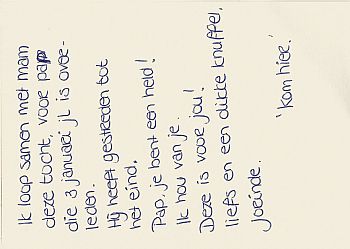 Ik loop samen met mam
deze tocht, voor pap
die 3 januari jl is over-
leden.
Hij heeft gestreden tot
het eind.
Pap, je bent een held!
Ik hou van je.
Deze is voor jou!
liefs en een dikke knuffel,
Joeinde.
'kom hier.'